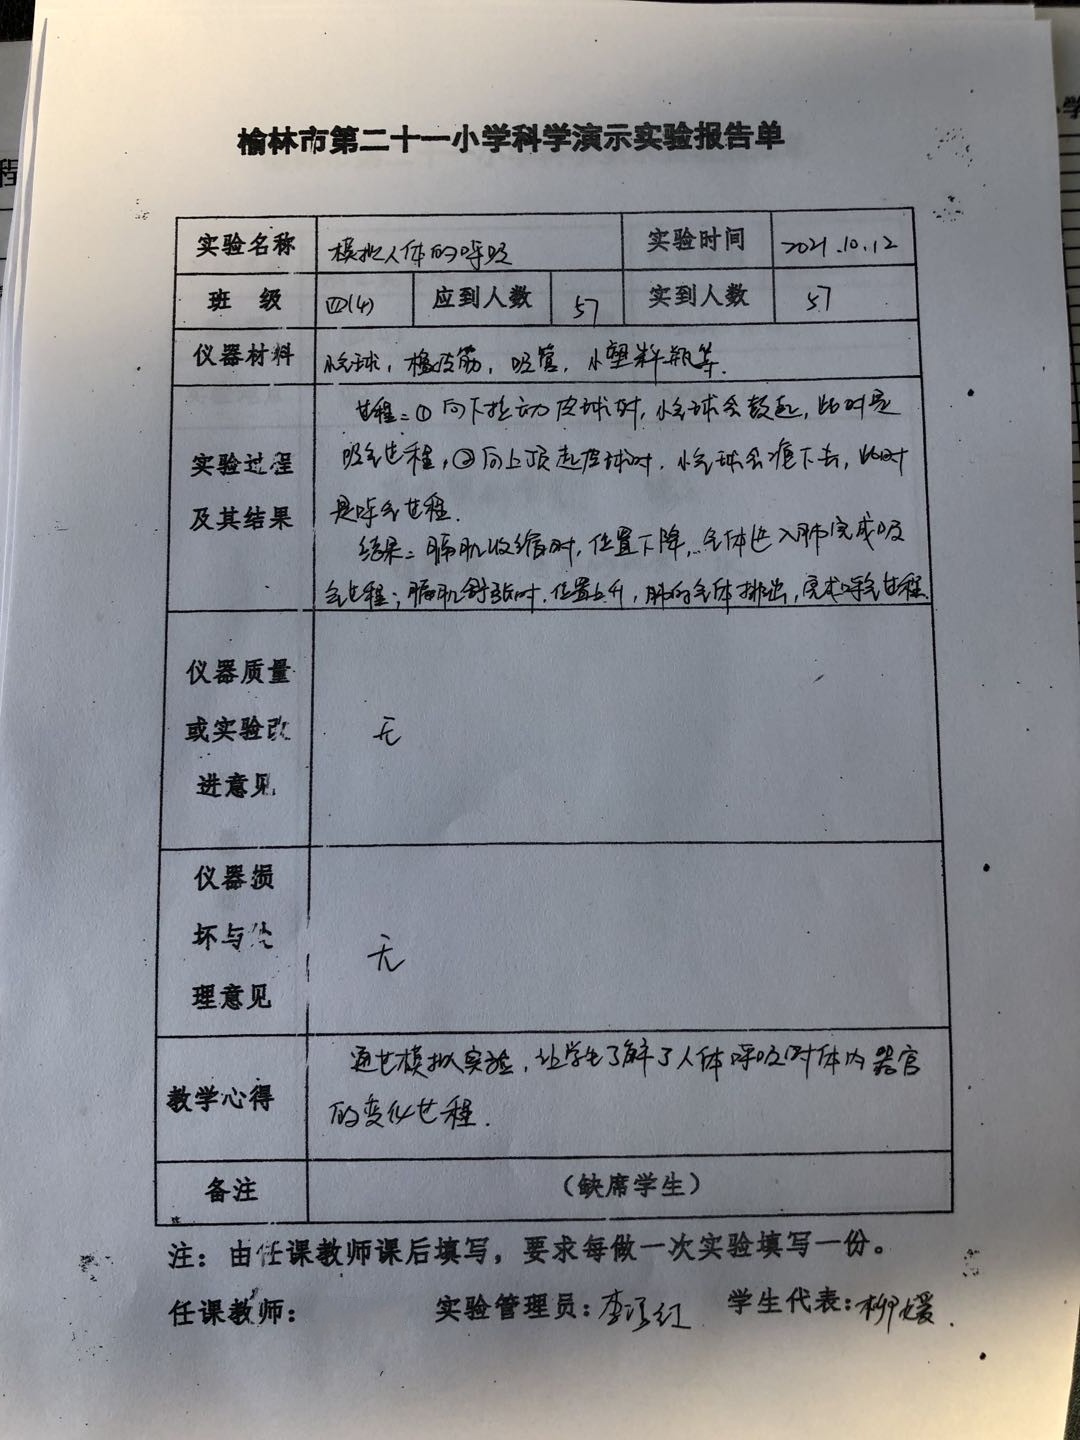 榆林市第二十一小学科学演示实验报告单
实验名称 模拟人体的呼吸 实验时间 2021.10.12
班 级 四(4) 应到人数 57 实到人数 57
仪器材料 小气球，橡皮筋，吸管，小塑料瓶等.
过程：①向下拉动皮球时，小气球会鼓起，此时是
实验过程 吸气过程，②向上顶起皮球时，小气球会瘪下去，此时
及其结果 是呼气过程.
结果：膈肌收缩时，位置下降，气体进入肺完成吸
气过程；膈肌舒张时，位置上升，肺内气体排出，完成呼气过程.
仪器质量
或实验改 无
进意见
仪器损
坏与处 无
理意见
通过模拟实验，让学生了解了人体呼吸时体内器官
教学心得 的变化过程.
备注 （缺席学生）
注：由任课教师课后填写，要求每做一次实验填写一份。
任课教师： 实验管理员：李 红 学生代表：柳媛.
程